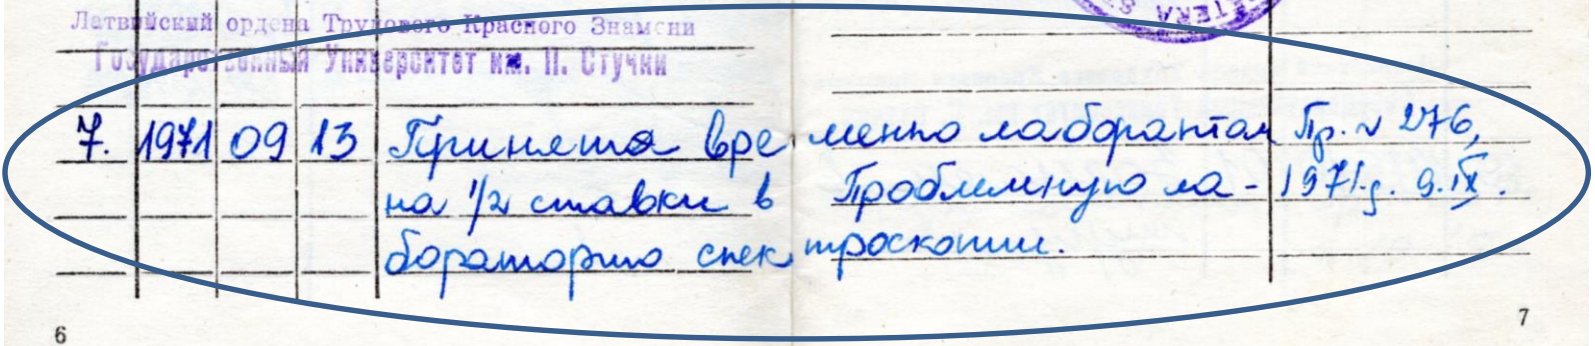 Латвийский ордена Трудового Красного Знамени
Государственный Университет им. П. Стучки
7. 1971 09 13 Принята временно лаборантом Пр. № 276,
на 1/2 ставки в Проблемную ла- 1971.g. 9.IX.
бораторию спектроскопии.
6
7